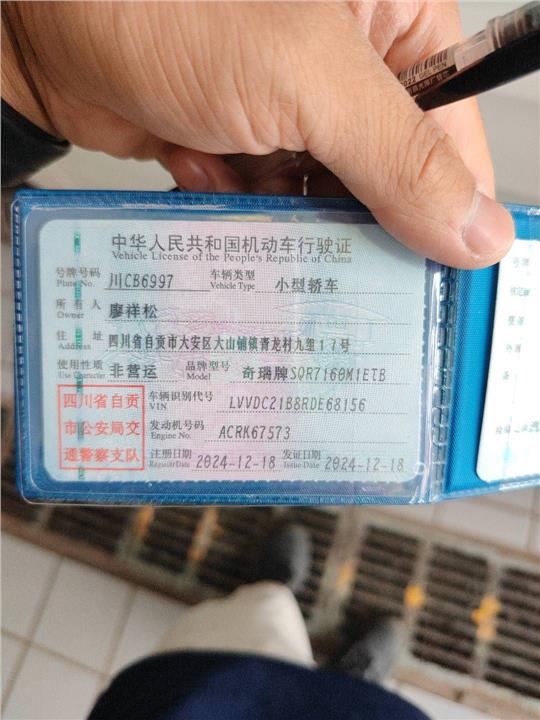 中华人民共和国机动车行驶证
Vehicle License of the People's Republic of China
号牌号码 Plate No. 川CB6997 车辆类型 Vehicle Type 小型轿车
所有人 Owner 廖祥松
住址 Address 四川省自贡市大安区大山铺镇青龙村九组17号
使用性质 Use Character 非营运 品牌型号 Model 奇瑞牌SQR7160M1ETB
四川省自贡
市公安局交
通警察支队
车辆识别代号 VIN LVVDC21B8RDE68156
发动机号码 Engine No. ACRK67573
注册日期 Register Date 2024-12-18 发证日期 Issue Date 2024-12-18
GEL PEN